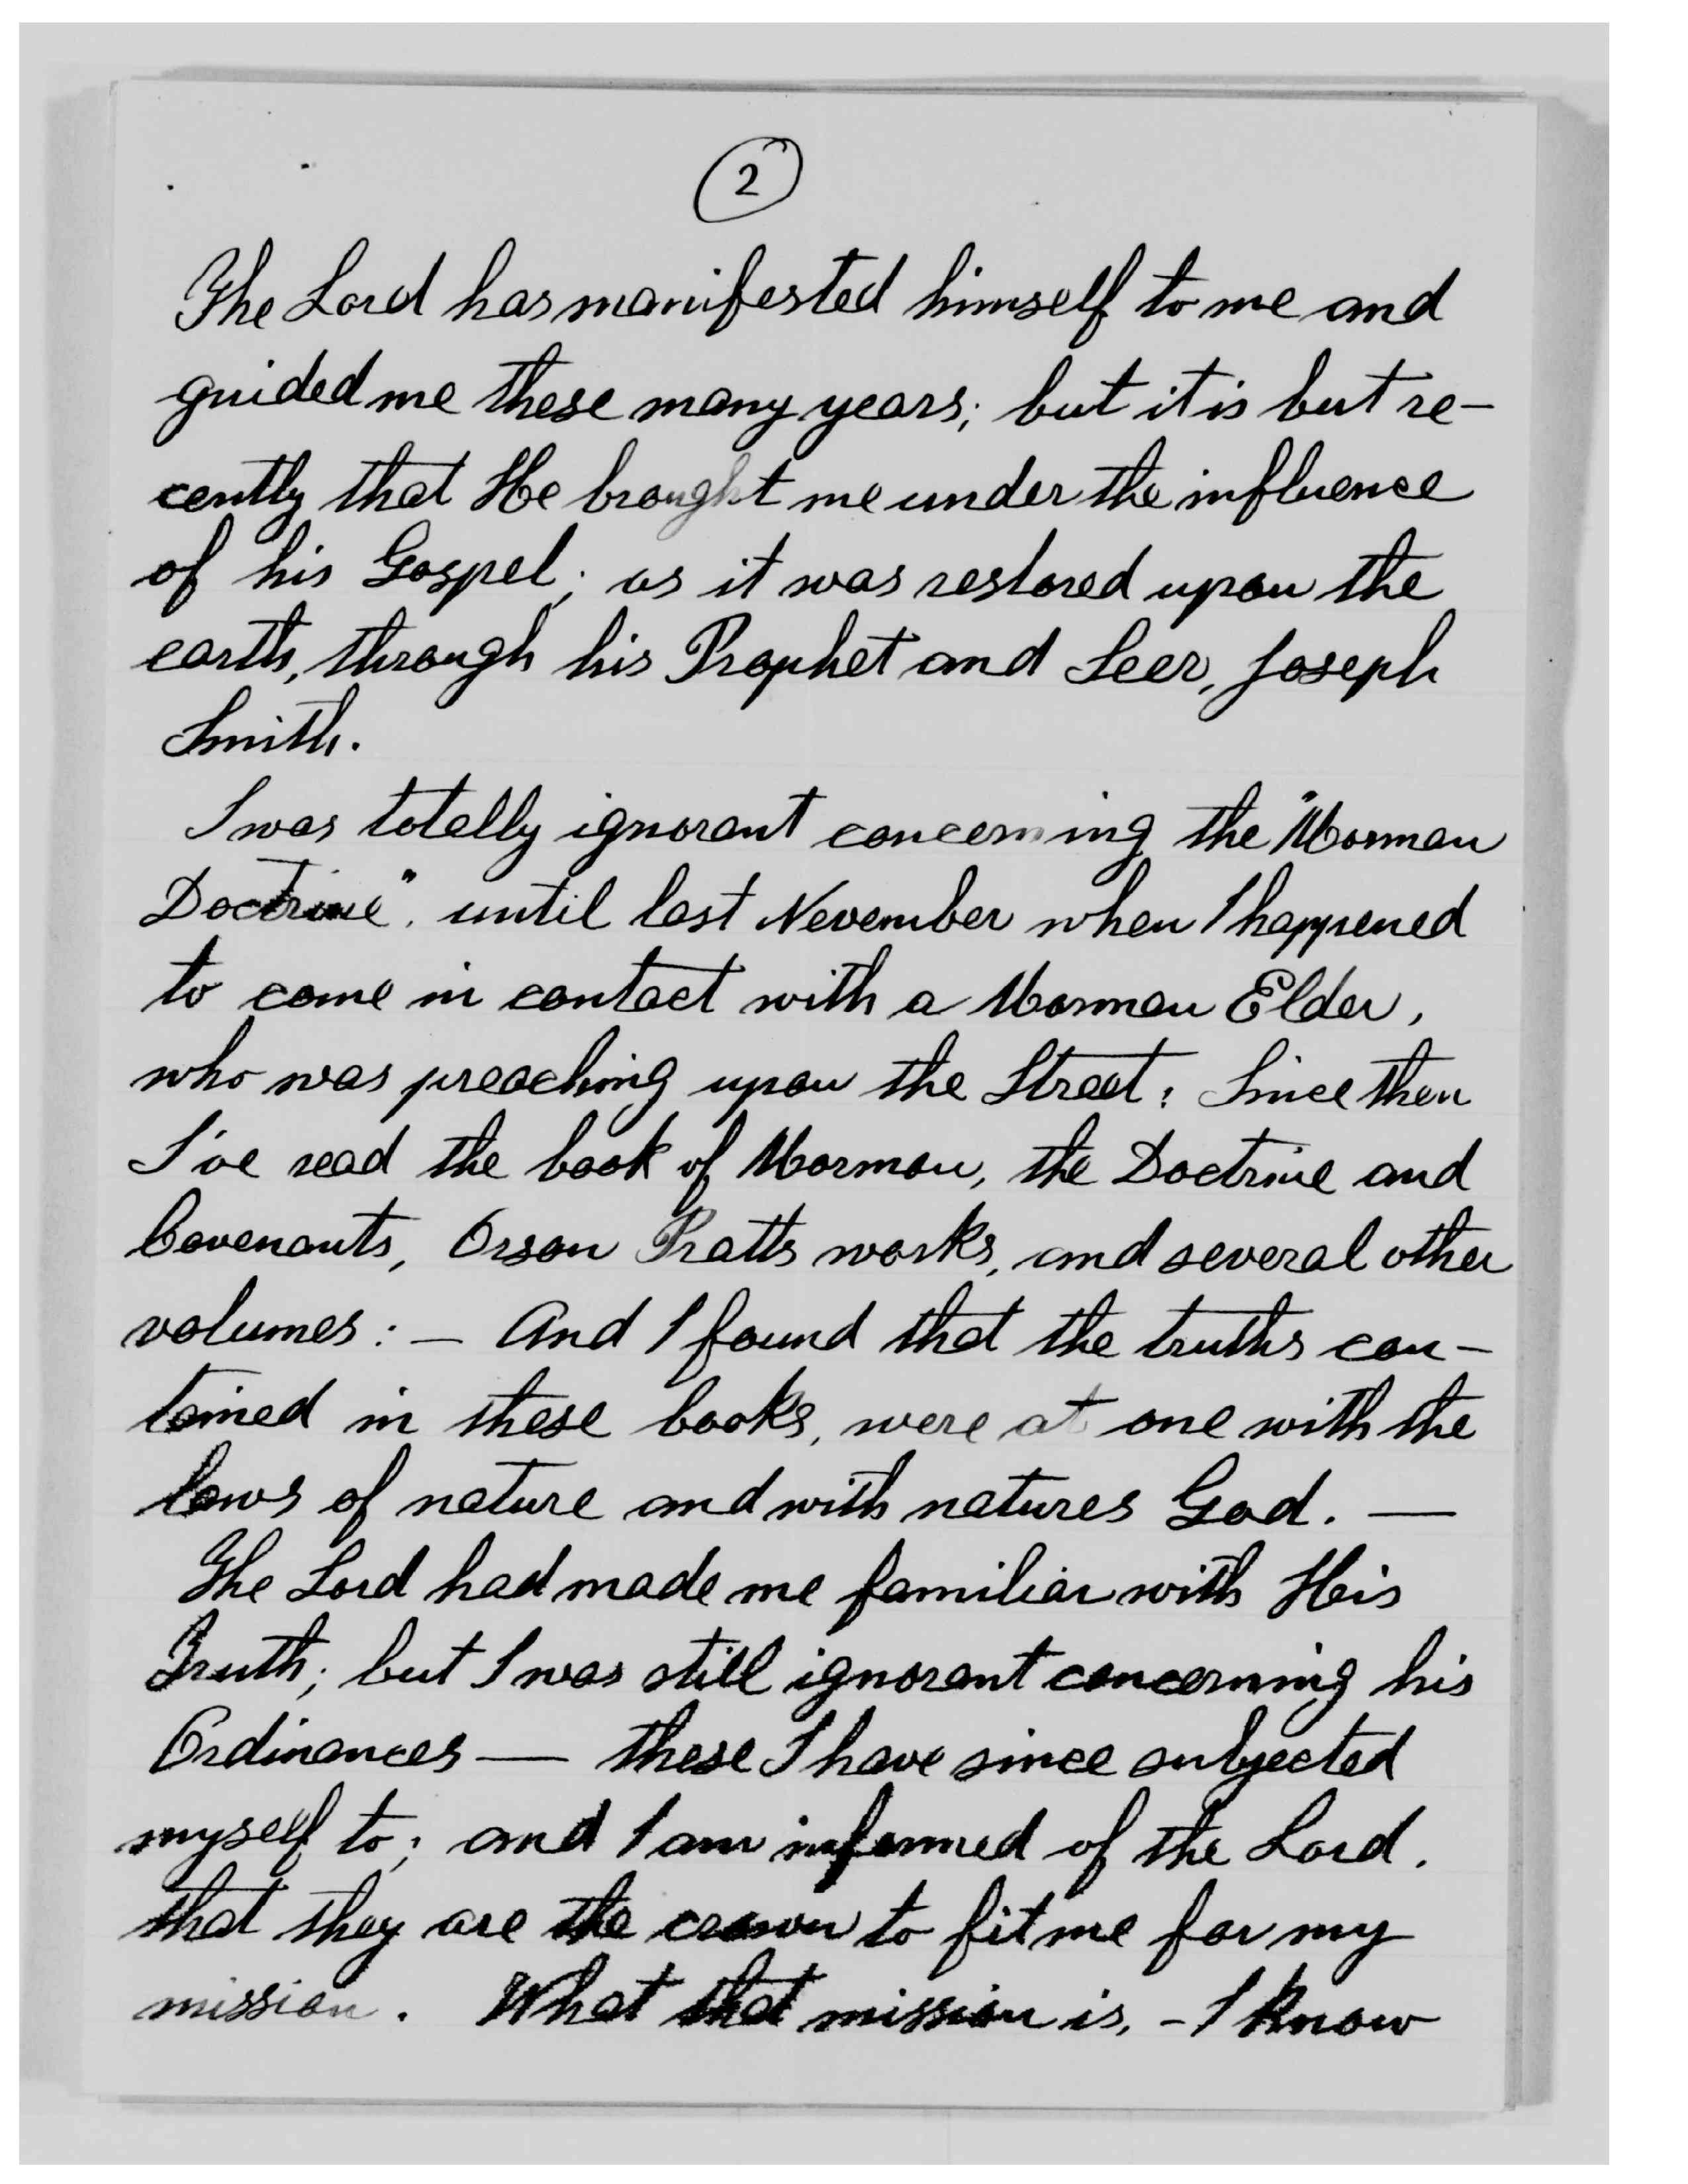 2
The Lord has manifested himself to me and
guided me these many years; but it is but re-
cently that He brought me under the influence
of his Gospel; as it was restored upon the
earth, through his Prophet and Seer, Joseph
Smith.
I was totally ignorant concerning the "Mormon
Doctrine". until last November when I happened
to come in contact with a Mormon Elder,
who was preaching upon the Street: Since then
I've read the book of Mormon, the Doctrine and
Covenants, Orson Pratts works, and several other
volumes: — And I found that the truths con-
tained in these books, were at one with the
laws of nature and with natures God. —
The Lord had made me familiar with His
Truth; but I was still ignorant concerning his
Ordinances — these I have since subjected
myself to; and I am informed of the Lord.
that they are the crown to fit me for my
mission. What that mission is, - I know